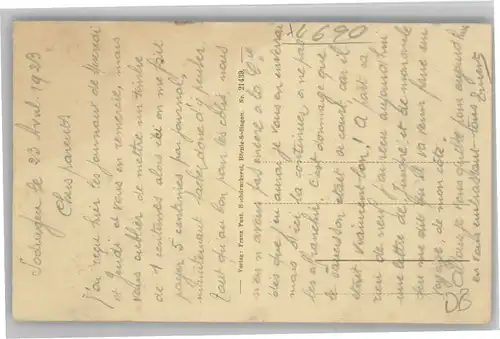 Sodingen le 23 Avril 1923
Chers parents
j'ai reçu hier les journaux de mercredi
et jeudi et vous en remercie, mais
vous oubliez de mettre un timbre
de 1 centimes alors ici on me fait
payer 5 centimes par journal,
maintenant tachez donc d'y penser
tout qu'au bon pour les colis nous
Verlag: Franz Post, Buchdruckerei, Börnig-Sodingen. Nr. 21439.
X 690
nous n'avons pas encore à la Cie
dès que j'en aurai je vous en enverrai
mais d'ici là continuez à ne pas
les affranchir. C'est dommage que
le saucisson était si court car il
était vraiment bon! A part ça
rien de neuf j'ai reçu aujourd'hui
une lettre de et de
qui me dit qu'il va venir faire un
voyage, de mon côté.
Allons je vous quitte pour aujourd'hui
en vous embrassant tous
Ernest